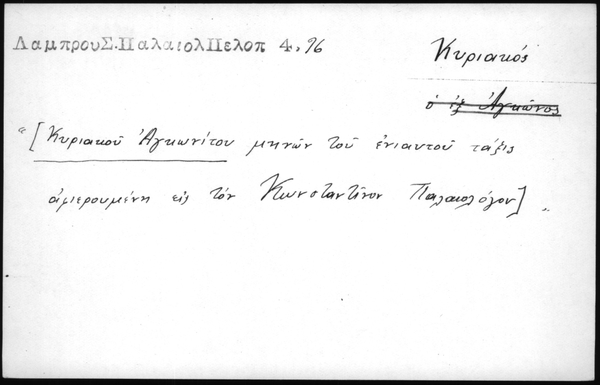 ΛαμπρουΣ.ΠαλαιολΠελοπ 4,96
Κυριακός
ὁ ἐξ Ἀγκῶνος
"[Κυριακοῦ Ἀγκωνίτου μηνῶν τοῦ ἐνιαυτοῦ τάξις
ἀφιερουμένη εἰς τόν Κωνσταντῖνον Παλαιολόγον] "